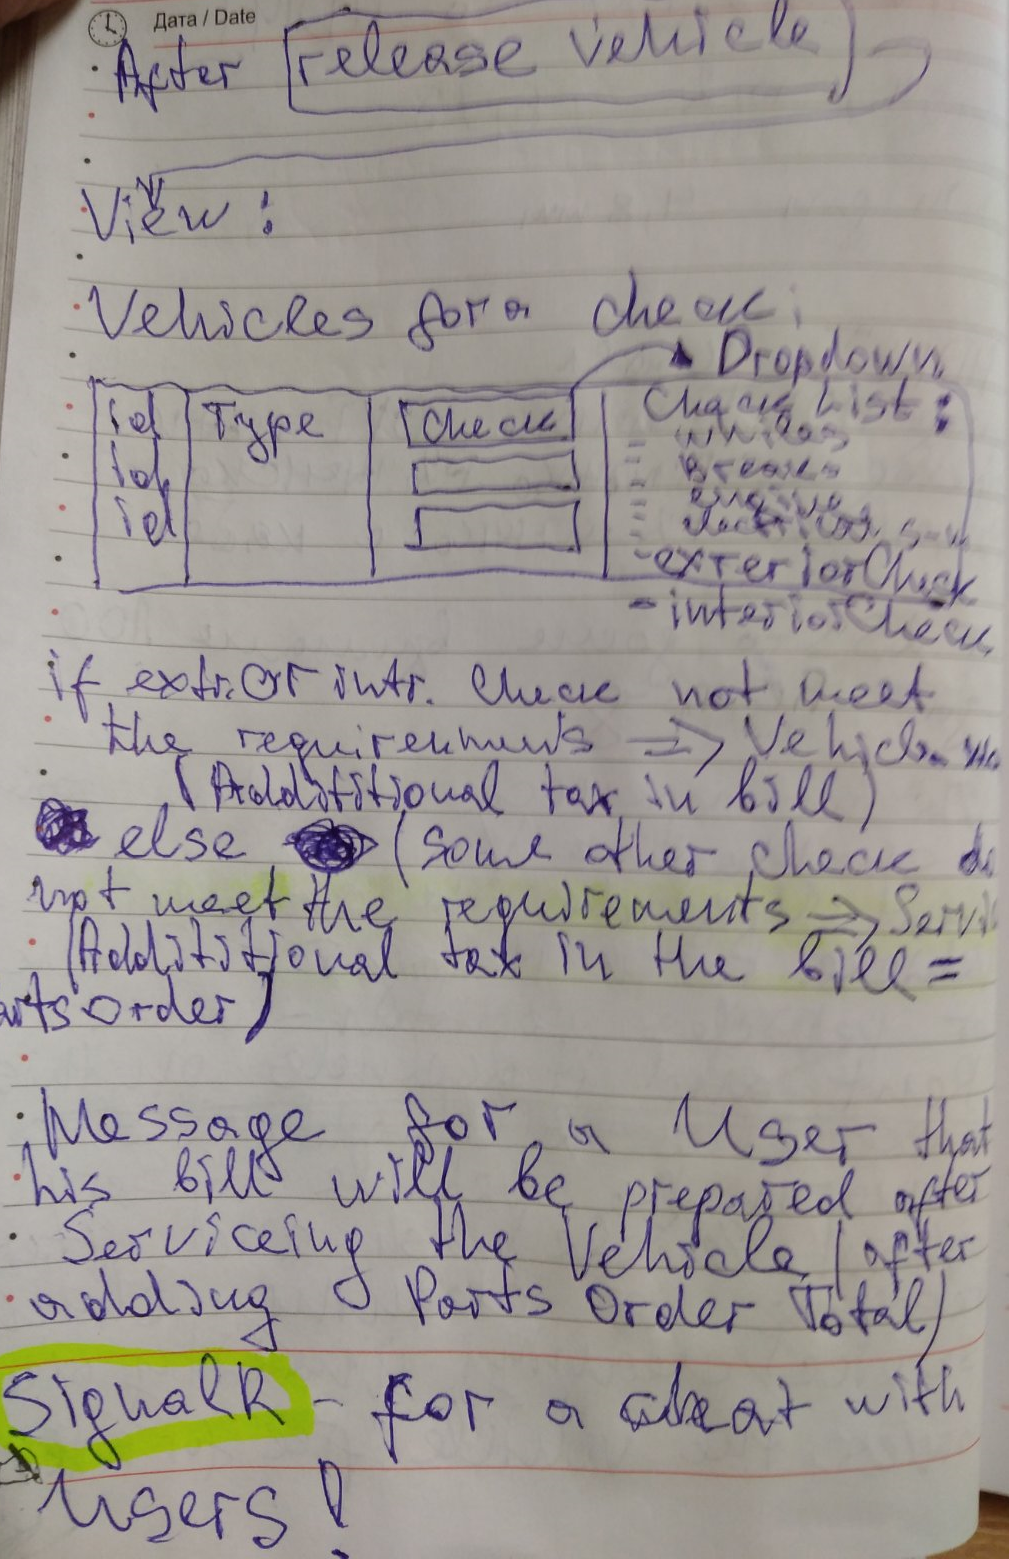 Дата / Date
After release vehicle
View:
Vehicles for a check:
Dropdown
id Type Check
id
id
Check List:
- breakes
- engine
- exteriorCheck
- interiorCheck
if extr. or intr. check not meet
the requirenments => Vehicle
(Addititional tax in bill)
else (some other check
not meet the requirements =>
(Addititional tax in the bill =
Order)
Message for a User that
his bill will be prepared after
Serviceing the Vehicle (after
adding Parts Order Total)
SignalR - for a chat with
Users!